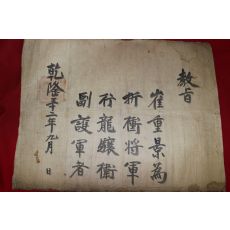 教旨
崔重景爲
折衝將軍
行龍驤衛
副護軍者
乾隆三十二年九月 日